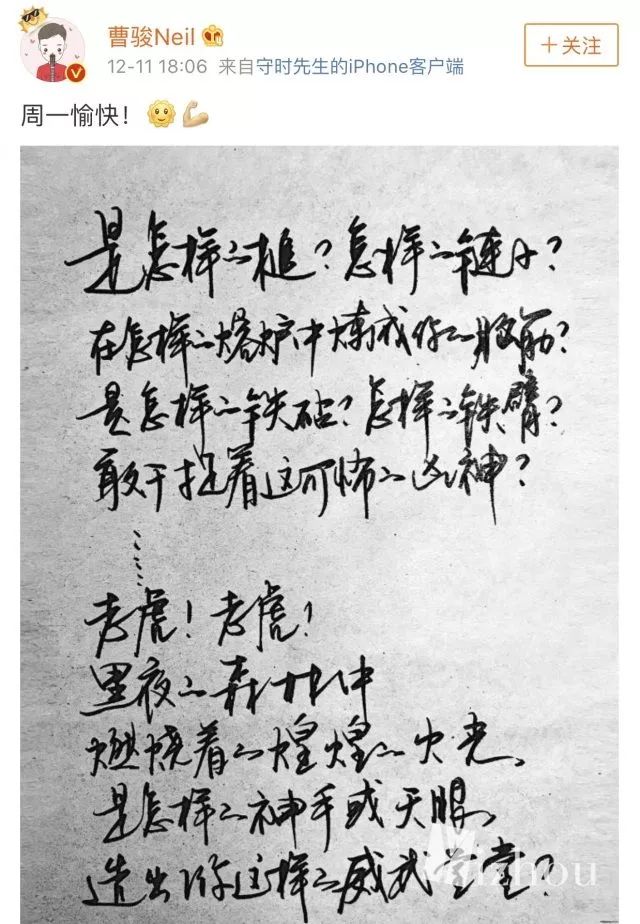 曹骏Neil
+关注
12-11 18:06 来自守时先生的iPhone客户端
周一愉快!
是怎样的槌?怎样的链子?
在怎样的熔炉中炼成你的脑筋?
是怎样的铁砧?怎样的铁臂?
敢于捉着这可怖的凶神?
……
老虎!老虎!
黑夜的森林中
燃烧着的煌煌的火光,
是怎样的神手或天眼
造出了你这样的威武堂堂?
Mizhou